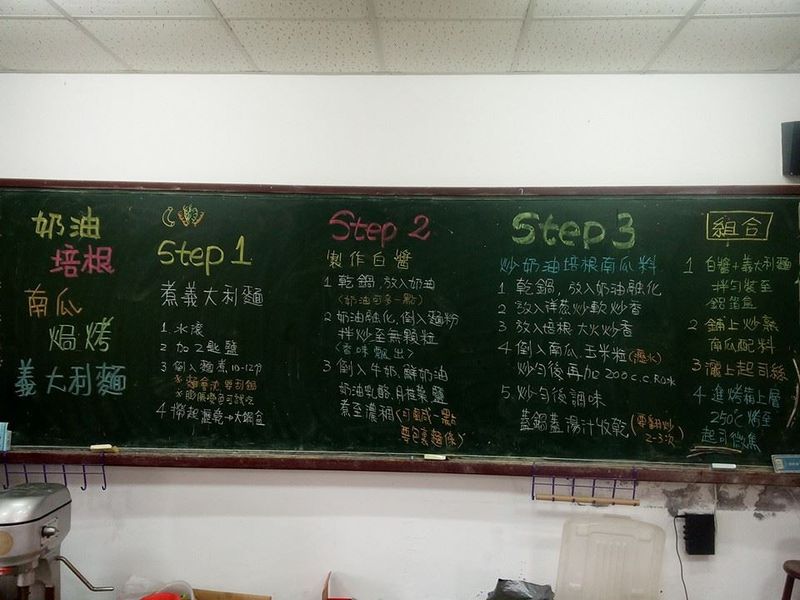 奶油
培根
南瓜
焗烤
義大利麵
Step 1
煮義大利麵
1. 水滾
2 加2匙鹽
3 倒入麵煮10-12分
4 撈起瀝乾→大鋼盆
Step 2
製作白醬
1 乾鍋,放入奶油
(奶油可多一點)
2 奶油融化,倒入麵粉
拌炒至無顆粒
(香味飄出)
3 倒入牛奶、鮮奶油
奶油乳酪、月桂葉、鹽
煮至濃稠(可鹹一點
要包裹麵條)
Step 3
炒奶油培根南瓜料
1 乾鍋,放入奶油融化
2 放入洋蔥炒軟炒香
3 放入培根大火炒香
4 倒入南瓜、玉米粒(瀝水)
炒勻後再加200c.c.RO水
5 炒勻後調味
蓋鍋蓋湯汁收乾(要翻炒
2-3次)
組合
1 白醬+義大利麵
拌勻裝至
鋁箔盒
2 鋪上炒熟
南瓜配料
3 灑上起司絲
4 進烤箱上層
250℃烤至
起司微焦